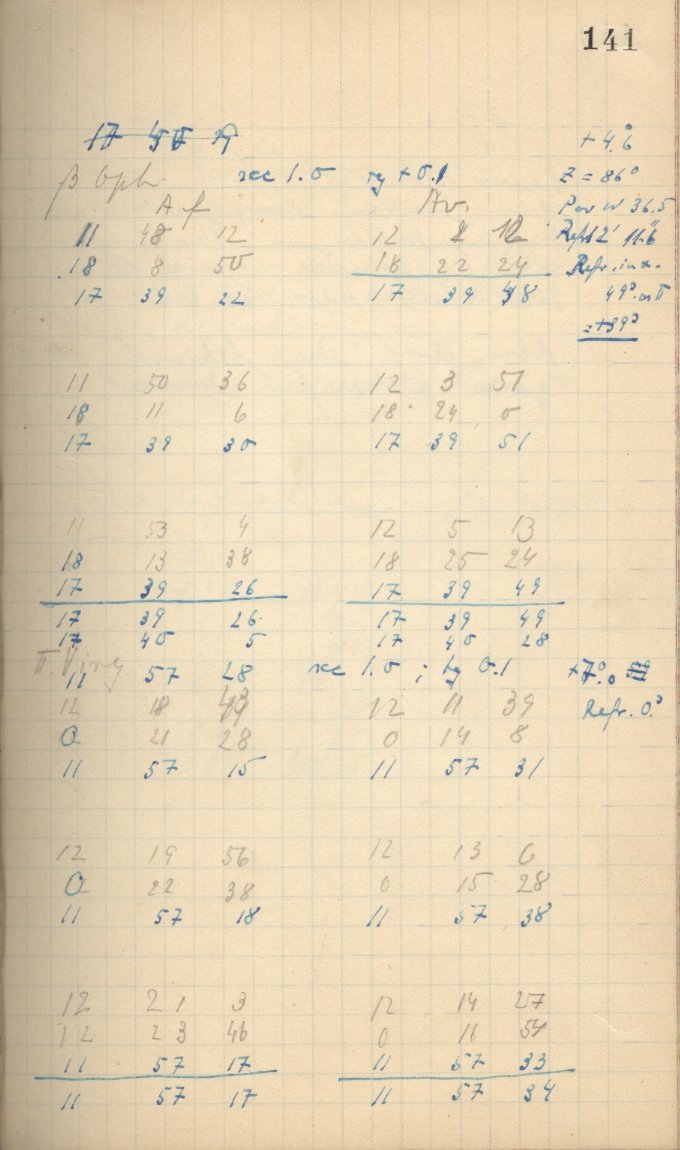 141
β Oph sec 1.0 tg + 0.1 Z = 86°
Af Av. Par W 36.5
11 48 12 12 2 12
18 8 50 18 22 24
17 39 22 17 39 48 49
11 50 36 12 3 51
18 11 6 18 24 0
17 39 30 17 39 51
11 53 4 12 5 13
18 13 38 18 25 24
17 39 26 17 39 49
17 39 26 17 39 49
17 40 5 17 40 28
π. Virg
11 57 28 sec 1.0 ; tg 0.1
12 18 12 11 39 Refr. 0.
0 21 28 0 14 8
11 57 15 11 57 31
12 19 56 12 13 6
0 22 38 0 15 28
11 57 18 11 57 38
12 21 3 12 14 27
12 23 46 0 16 54
11 57 17 11 57 33
11 57 17 11 57 34